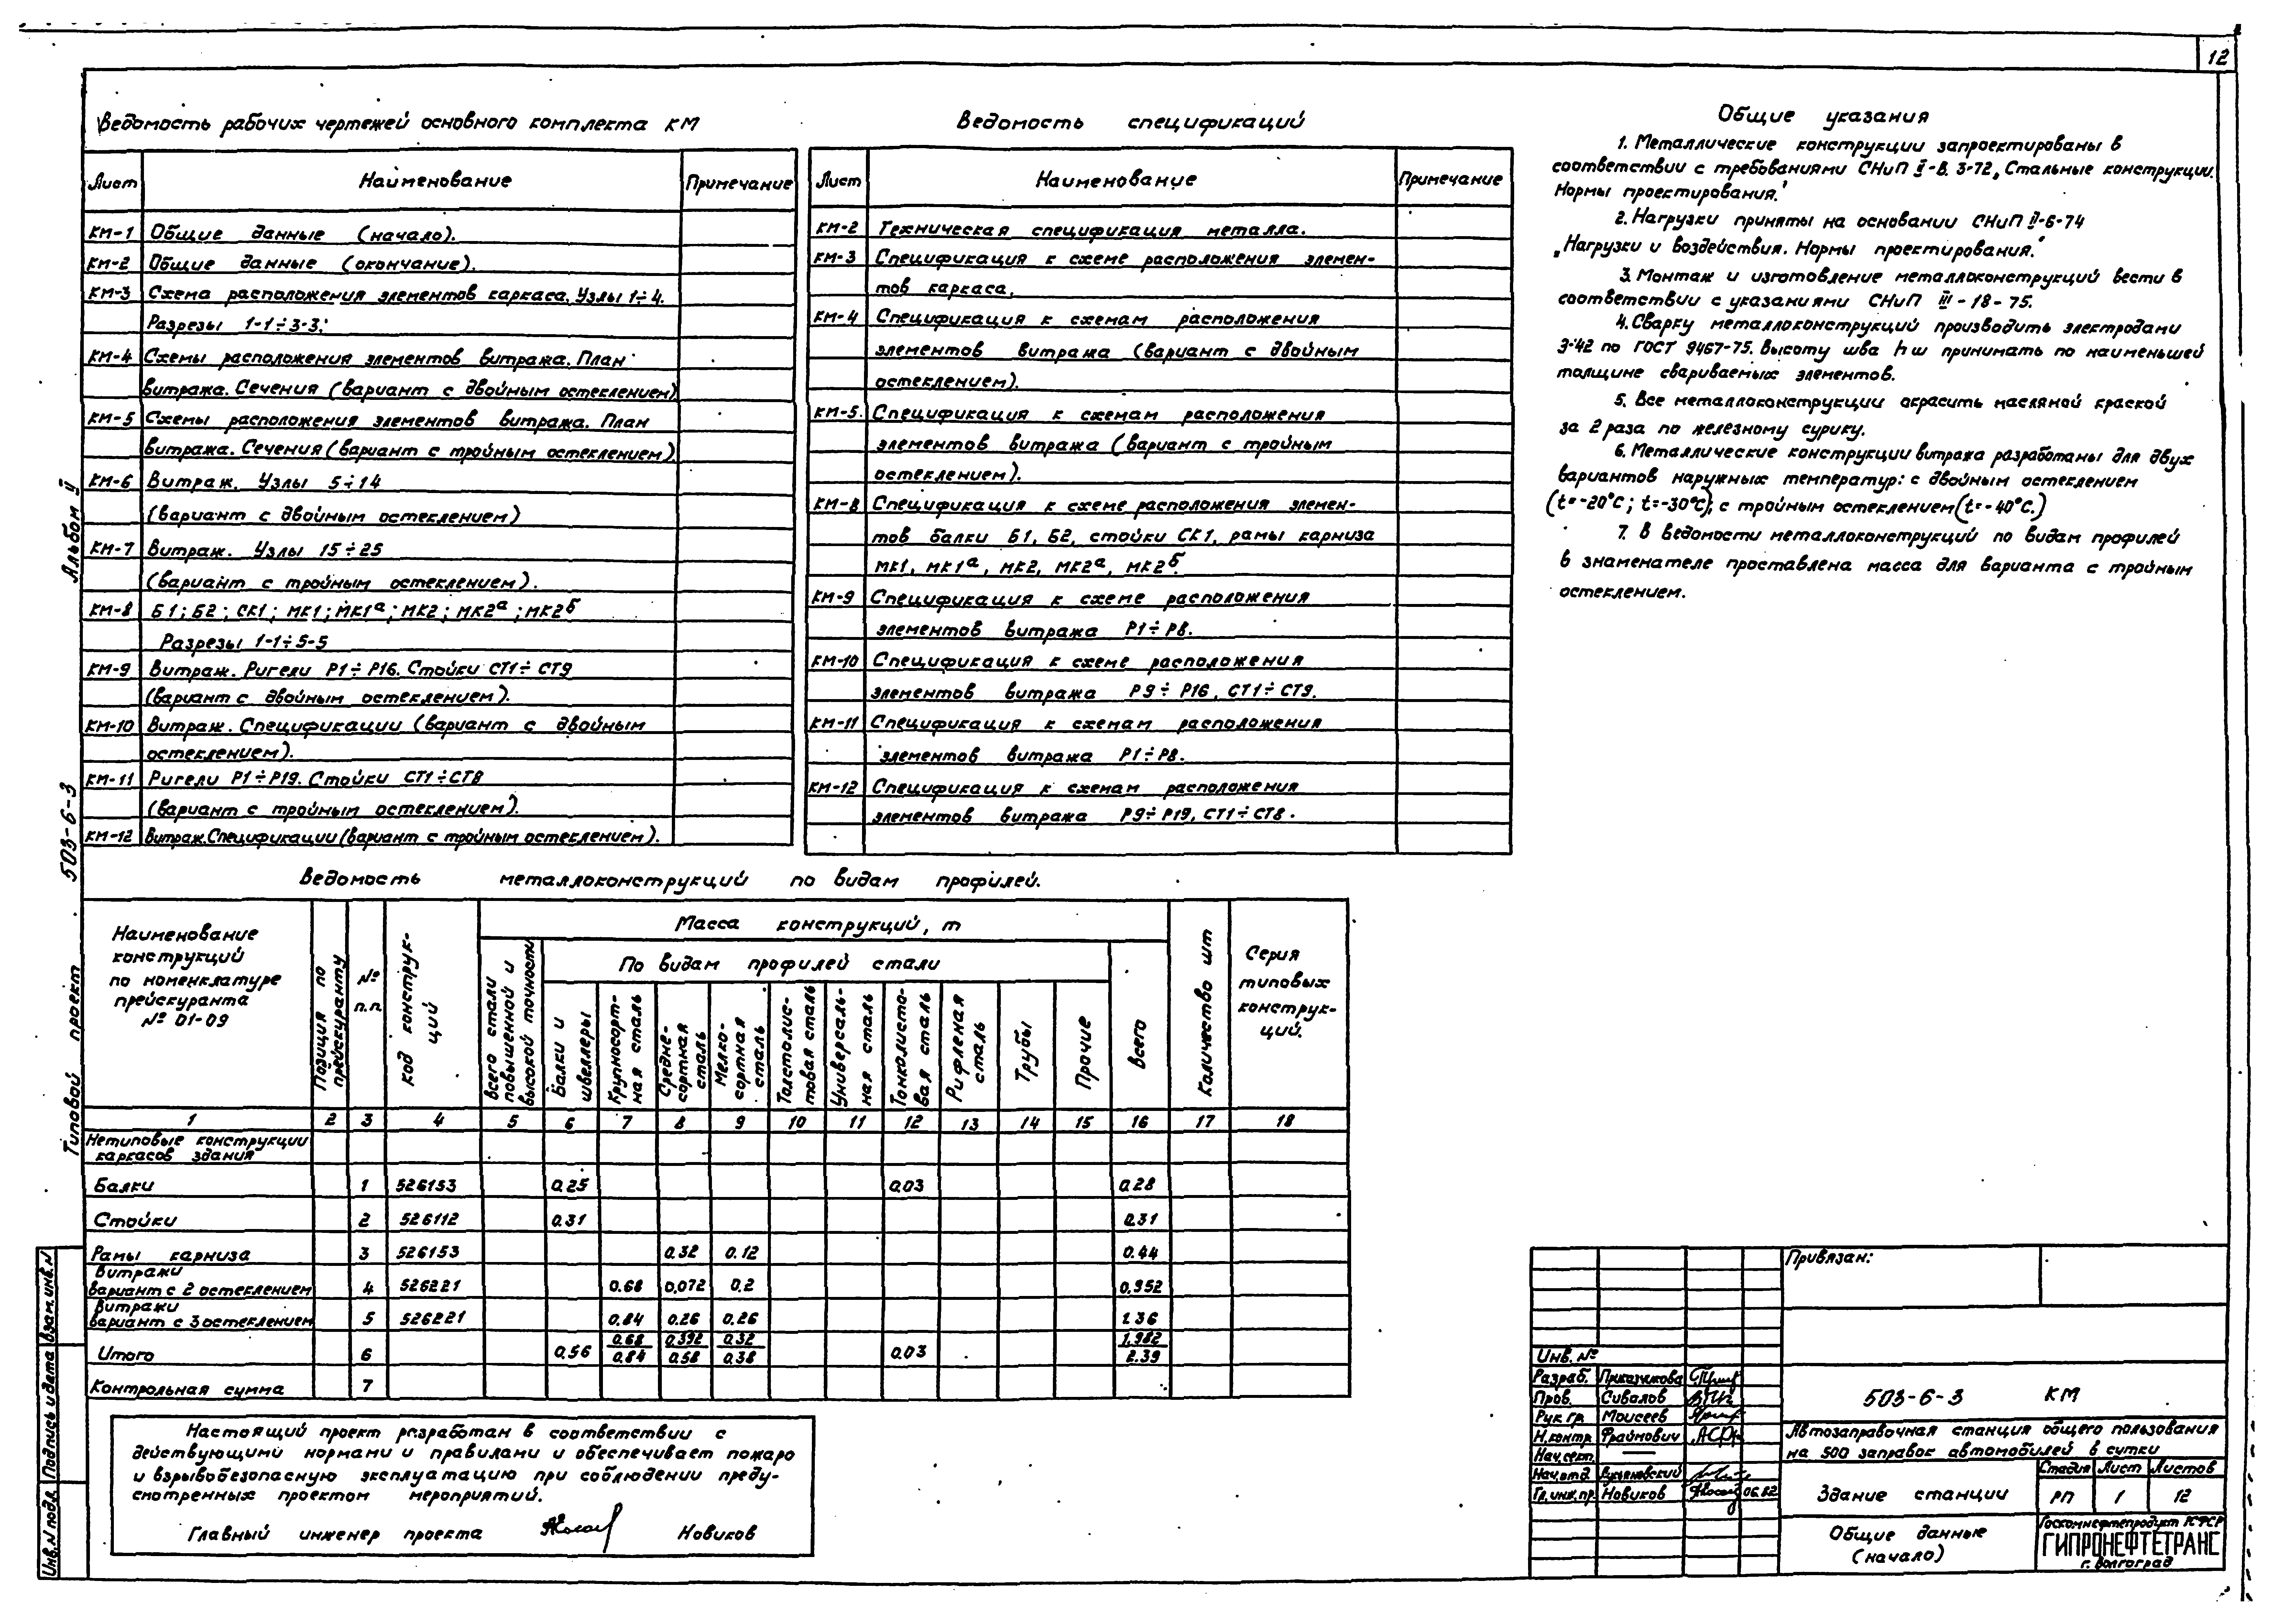 12
Ведомость рабочих чертежей основного комплекта КМ
Лист Наименование Примечание
КМ-1 Общие данные (начало).
КМ-2 Общие данные (окончание).
КМ-3 Схема расположения элементов каркаса. Узлы 1÷4.
Разрезы 1-1÷3-3.
КМ-4 Схемы расположения элементов витража. План
витража. Сечения (вариант с двойным остеклением)
КМ-5 Схемы расположения элементов витража. План
витража. Сечения (вариант с тройным остеклением).
КМ-6 Витраж. Узлы 5÷14
(вариант с двойным остеклением)
КМ-7 Витраж. Узлы 15÷25
(вариант с тройным остеклением).
КМ-8 Б1; Б2; СК1; МК1; МК1а; МК2; МК2а; МК2б
Разрезы 1-1÷5-5
КМ-9 Витраж. Ригели Р1÷Р16. Стойки СТ1÷СТ9
(вариант с двойным остеклением).
КМ-10 Витраж. Спецификации (вариант с двойным
остеклением).
КМ-11 Ригели Р1÷Р19. Стойки СТ1÷СТ8
(вариант с тройным остеклением).
КМ-12 Витраж. Спецификации (вариант с тройным остеклением).
Ведомость спецификаций
Лист Наименование Примечание
КМ-2 Техническая спецификация металла.
КМ-3 Спецификация к схеме расположения элемен-
тов каркаса.
КМ-4 Спецификация к схемам расположения
элементов витража (вариант с двойным
остеклением).
КМ-5. Спецификация к схемам расположения
элементов витража (вариант с тройным
остеклением).
КМ-8 Спецификация к схеме расположения элемен-
тов балки Б1, Б2, стойки СК1, рамы карниза
МК1, МК1а, МК2, МК2а, МК2б.
КМ-9 Спецификация к схеме расположения
элементов витража Р1÷Р8.
КМ-10 Спецификация к схеме расположения
элементов витража Р9÷Р16, СТ1÷СТ9.
КМ-11 Спецификация к схемам расположения
элементов витража Р1÷Р8.
КМ-12 Спецификация к схемам расположения
элементов витража Р9÷Р19, СТ1÷СТ8.
Общие указания
1. Металлические конструкции запроектированы в
соответствии с требованиями СНиП II-В. 3-72 „Стальные конструкции.
Нормы проектирования."
2. Нагрузки приняты на основании СНиП II-6-74
„Нагрузки и воздействия. Нормы проектирования."
3. Монтаж и изготовление металлоконструкций вести в
соответствии с указаниями СНиП III-18-75.
4. Сварку металлоконструкций производить электродами
Э-42 по ГОСТ 9467-75. Высоту шва hш принимать по наименьшей
толщине свариваемых элементов.
5. Все металлоконструкции окрасить масляной краской
за 2 раза по железному сурику.
6. Металлические конструкции витража разработаны для двух
вариантов наружных температур: с двойным остеклением
(t=-20°С; t=-30°С); с тройным остеклением (t=-40°С.)
7. В ведомости металлоконструкций по видам профилей
в знаменателе проставлена масса для варианта с тройным
остеклением.
Ведомость металлоконструкций по видам профилей.
Наименование
конструкций
по номенклатуре
прейскуранта
№ 01-09
Позиция по
прейскуранту
№
п.п.
Код конструк-
ций
Масса конструкций, т
Всего стали
повышенной и
высокой точности
По видам профилей стали
Балки и
швеллеры
Крупносорт-
ная сталь
Средне-
сортная
сталь
Мелко-
сортная
сталь
Толстолис-
товая сталь
Универсаль-
ная сталь
Тонколисто-
вая сталь
Рифленая
сталь
Трубы
Прочие
Всего
Количество шт
Серия
типовых
конструк-
ций.
1 2 3 4 5 6 7 8 9 10 11 12 13 14 15 16 17 18
Нетиповые конструкции
каркасов здания
Балки 1 526153 0.25 0.03 0.28
Стойки 2 526112 0.31 0.31
Рамы карниза 3 526153 0.32 0.12 0.44
Витражи
вариант с 2 остеклением 4 526221 0.68 0,072 0.2 0.952
Витражи
вариант с 3 остеклением 5 526221 0.84 0.26 0.26 1.36
0.68 0.392 0.32 1.982
Итого 6 0.56 0.03
0.84 0.58 0.38 2.39
Контрольная сумма 7
Настоящий проект разработан в соответствии с
действующими нормами и правилами и обеспечивает пожаро
и взрывобезопасную эксплуатацию при соблюдении преду-
смотренных проектом мероприятий.
Главный инженер проекта Новиков
Альбом II
Типовой проект 503-6-3
Взам. инв. №
Подпись и дата
Инв. № подл.
Привязан:
Инв. №
Разраб.
Пров. Сивалов
Рук. гр. Моисеев
Н.контр. Файнович
Нач. сект. —
Нач. отд.
Гл. инж. пр. Новиков 06.82
503-6-3 КМ
Автозаправочная станция общего пользования
на 500 заправок автомобилей в сутки
Здание станции
Стадия Лист Листов
РП 1 12
Общие данные
(начало)
Госкомнефтепродукт РСФСР
ГИПРОНЕФТЕТРАНС
г. Волгоград